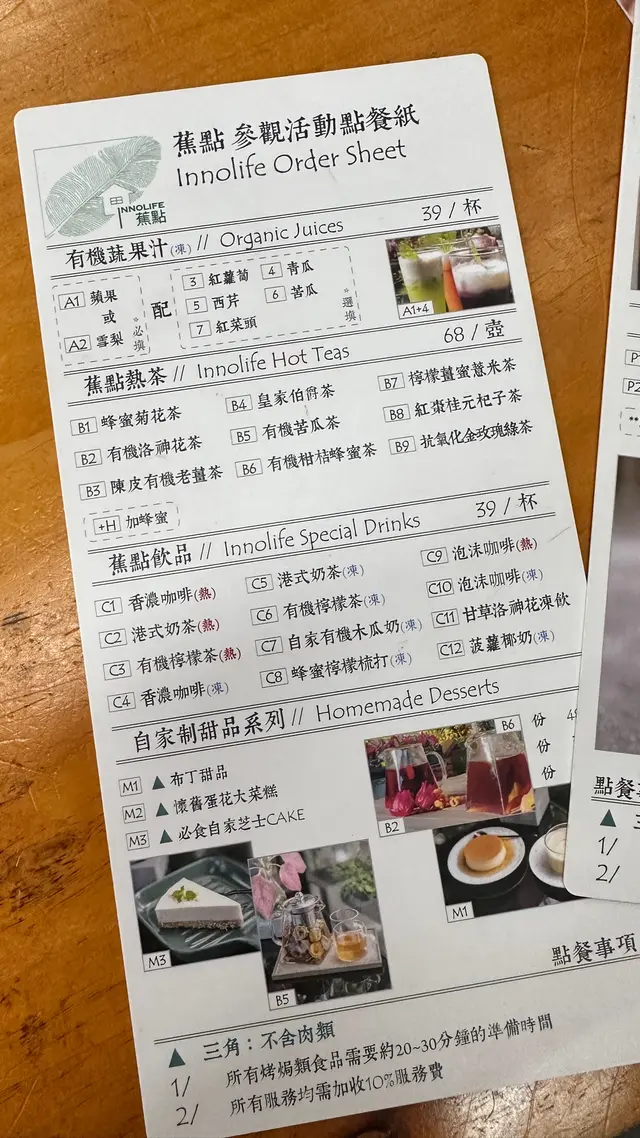 蕉點 參觀活動點餐紙
Innolife Order Sheet
INNOLIFE
蕉點
有機蔬果汁(凍) // Organic Juices 39 / 杯
A1 蘋果
或
A2 雪梨
必填
配
3 紅蘿蔔 4 青瓜
5 西芹 6 苦瓜
7 紅菜頭
選填
A1+4
蕉點熱茶 // Innolife Hot Teas 68 / 壺
B1 蜂蜜菊花茶 B4 皇家伯爵茶 B7 檸檬薑蜜薏米茶
B2 有機洛神花茶 B5 有機苦瓜茶 B8 紅棗桂元杞子茶
B3 陳皮有機老薑茶 B6 有機柑桔蜂蜜茶 B9 抗氧化金玫瑰綠茶
+H 加蜂蜜
蕉點飲品 // Innolife Special Drinks 39 / 杯
C1 香濃咖啡(熱) C5 港式奶茶(凍) C9 泡沫咖啡(熱)
C2 港式奶茶(熱) C6 有機檸檬茶(凍) C10 泡沫咖啡(凍)
C3 有機檸檬茶(熱) C7 自家有機木瓜奶(凍) C11 甘草洛神花凍飲
C4 香濃咖啡(凍) C8 蜂蜜檸檬梳打(凍) C12 菠蘿椰奶(凍)
自家制甜品系列 // Homemade Desserts
M1 ▲ 布丁甜品 份
M2 ▲ 懷舊蛋花大菜糕 份
M3 ▲ 必食自家芝士CAKE 份
B6
B2
M1
M3
B5
點餐事項
▲ 三角：不含肉類
1/ 所有烤焗類食品需要約20~30分鐘的準備時間
2/ 所有服務均需加收10%服務費
P1
P2
點餐事
▲
1/
2/